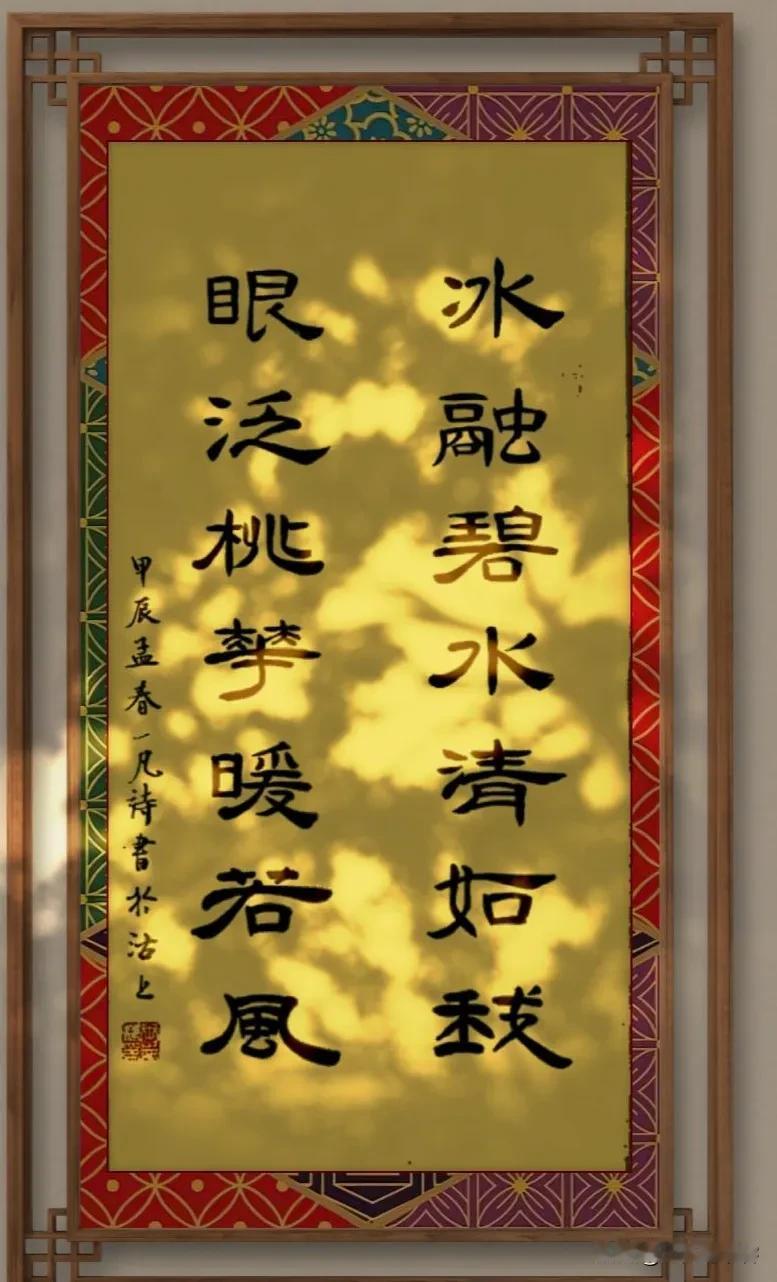 冰融碧水清如我
眼泛桃華暖若風
甲辰孟春一凡詩書於沽上